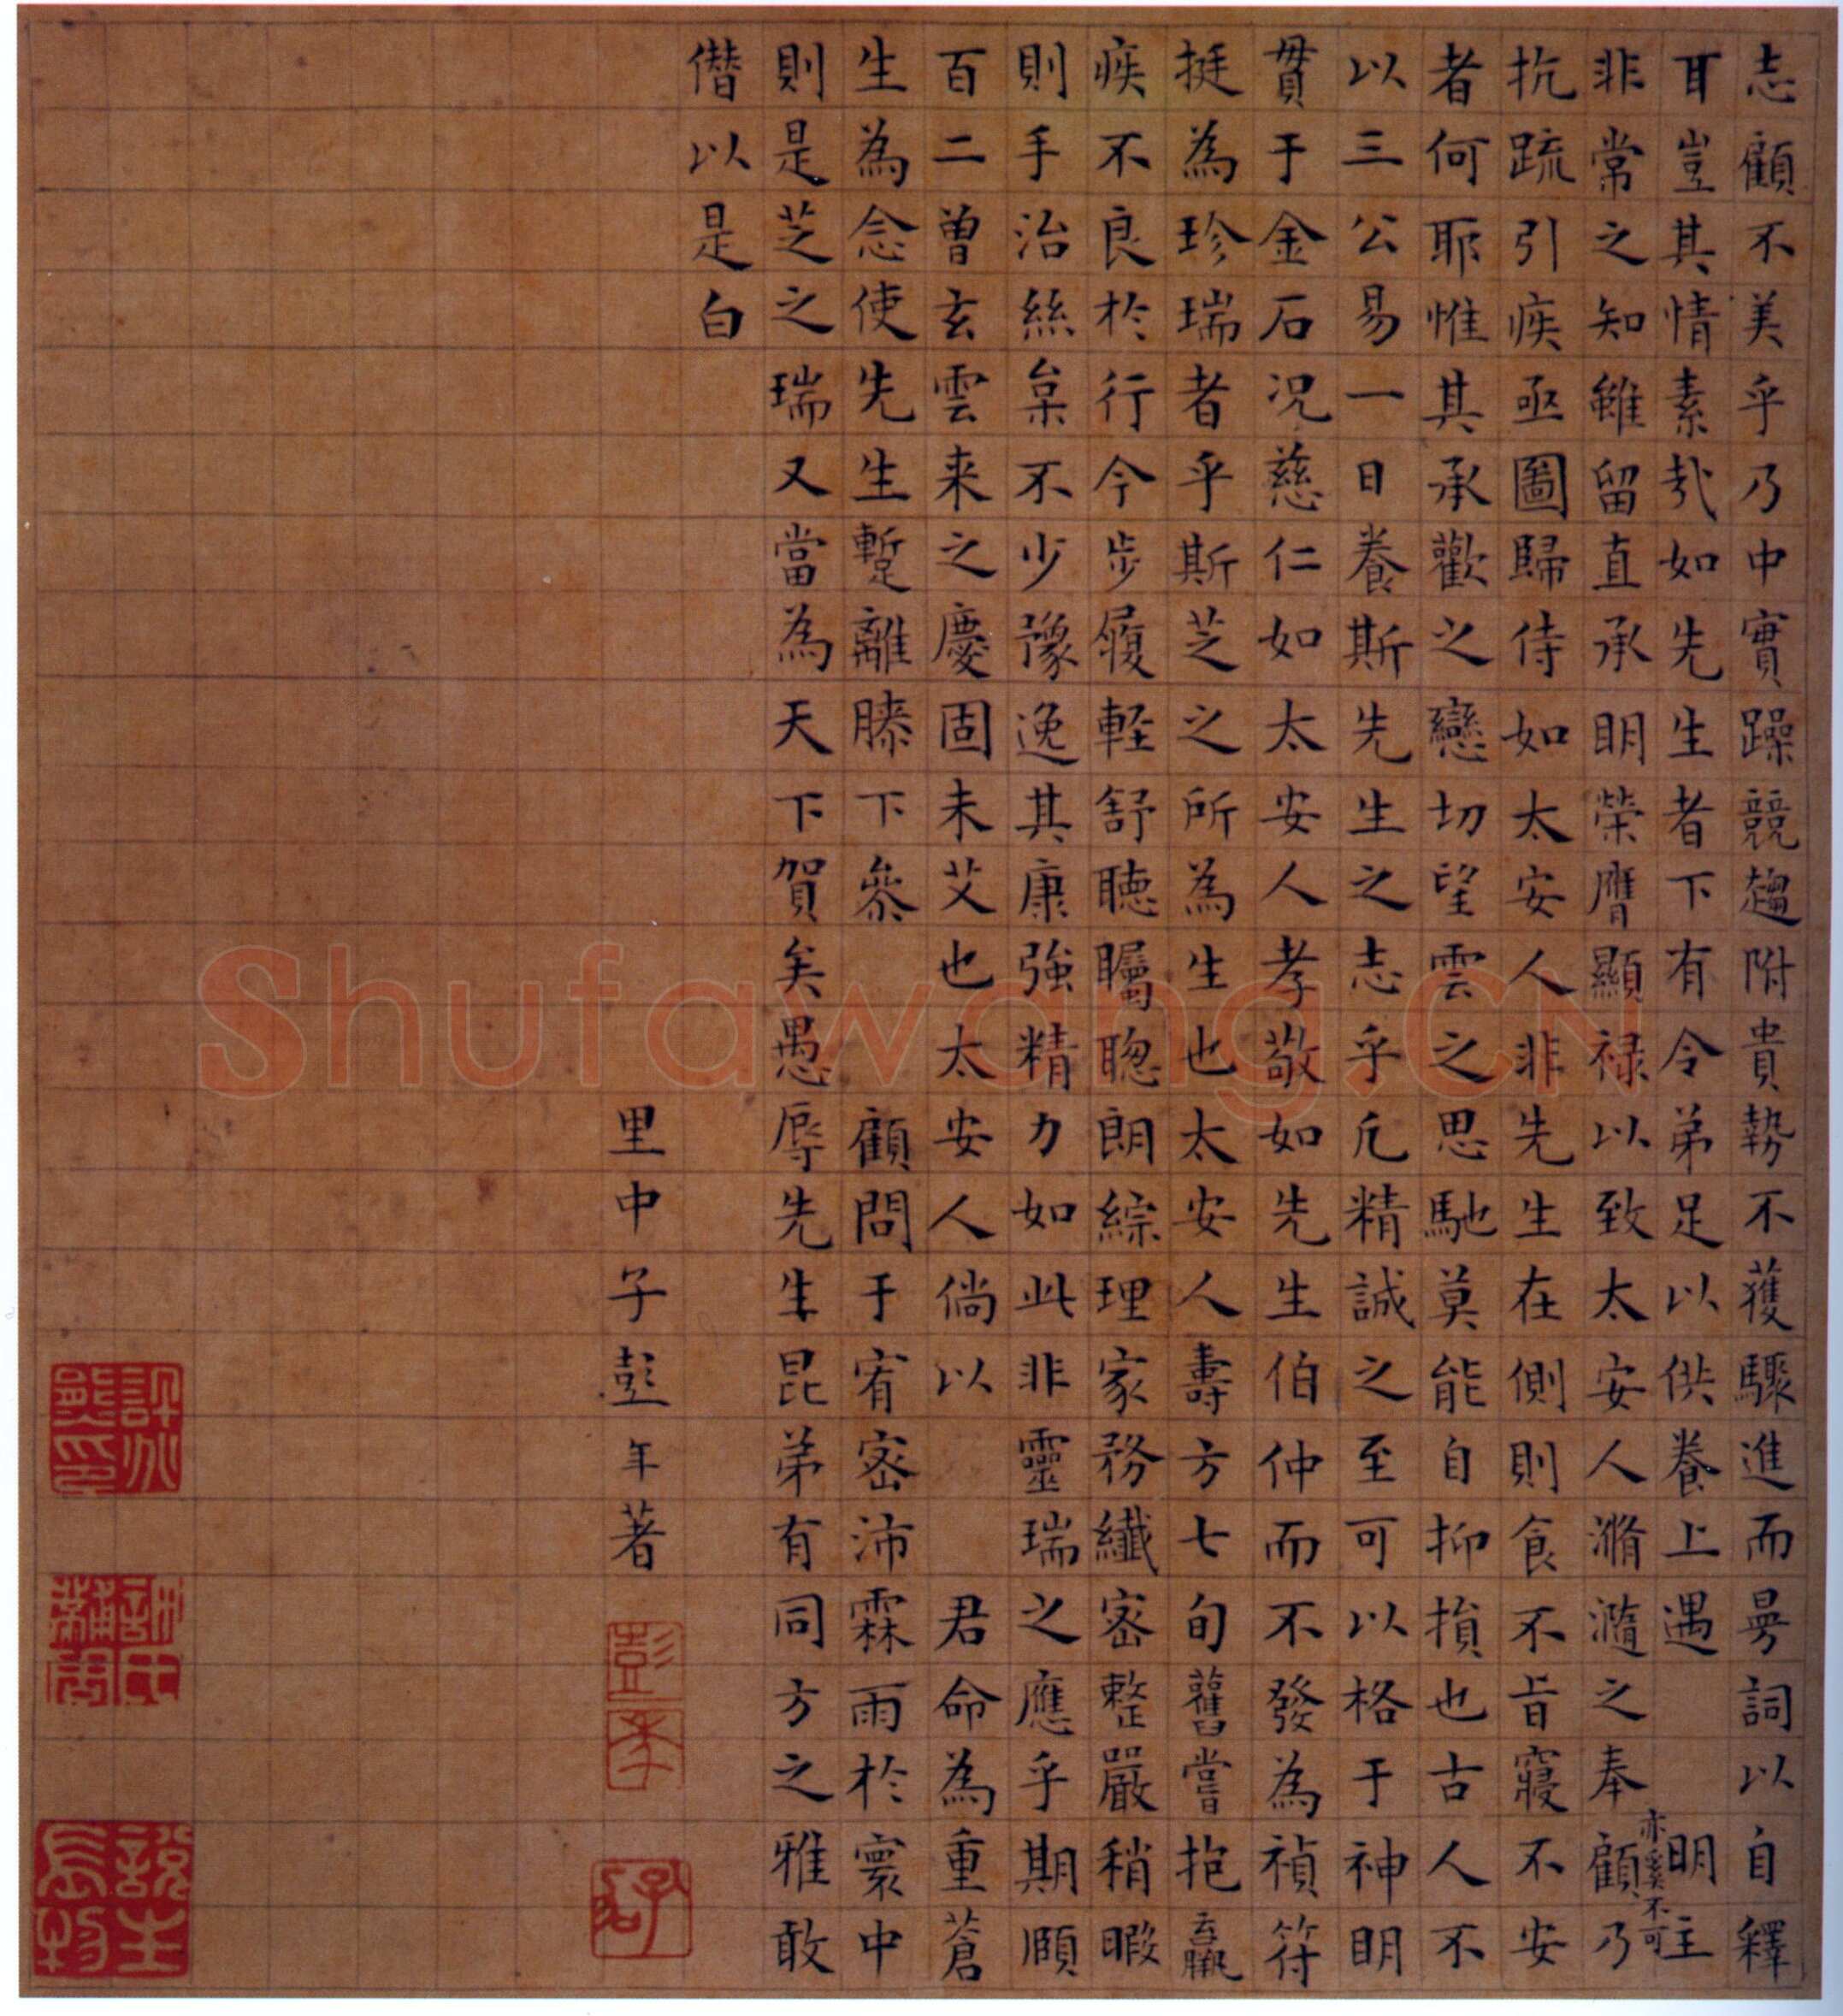 志顧不美乎乃中實躁競趨附貴勢不獲驟進而曼詞以自釋
耳豈其情素哉如先生者下有令弟足以供養上遇明主
亦奚不可
非常之知雖留直承明榮膺顯禄以致太安人滫瀡之奉顧乃
抗疏引疾亟圖歸侍如太安人非先生在側則食不旨寢不安
者何耶惟其承歡之戀切望雲之思馳莫能自抑損也古人不
以三公易一日養斯先生之志乎凢精誠之至可以格于神明
貫于金石况慈仁如太安人孝敬如先生伯仲而不發為禎符
挺為珍瑞者乎斯芝之所為生也太安人壽方七旬舊嘗抱羸
疾不良於行今步履輕舒聽矚聰朗綜理家務纖密整嚴稍暇
則手治絲枲不少豫逸其康強精力如此非靈瑞之應乎期頤
百二曾玄雲来之慶固未艾也太安人倘以君命為重蒼
生為念使先生蹔離膝下叅顧問于宥密沛霖雨於寰中
則是芝之瑞又當為天下賀矣愚辱先生昆弟有同方之雅敢
僭以是白
里中子彭年著
彭年
Shufawang.CN